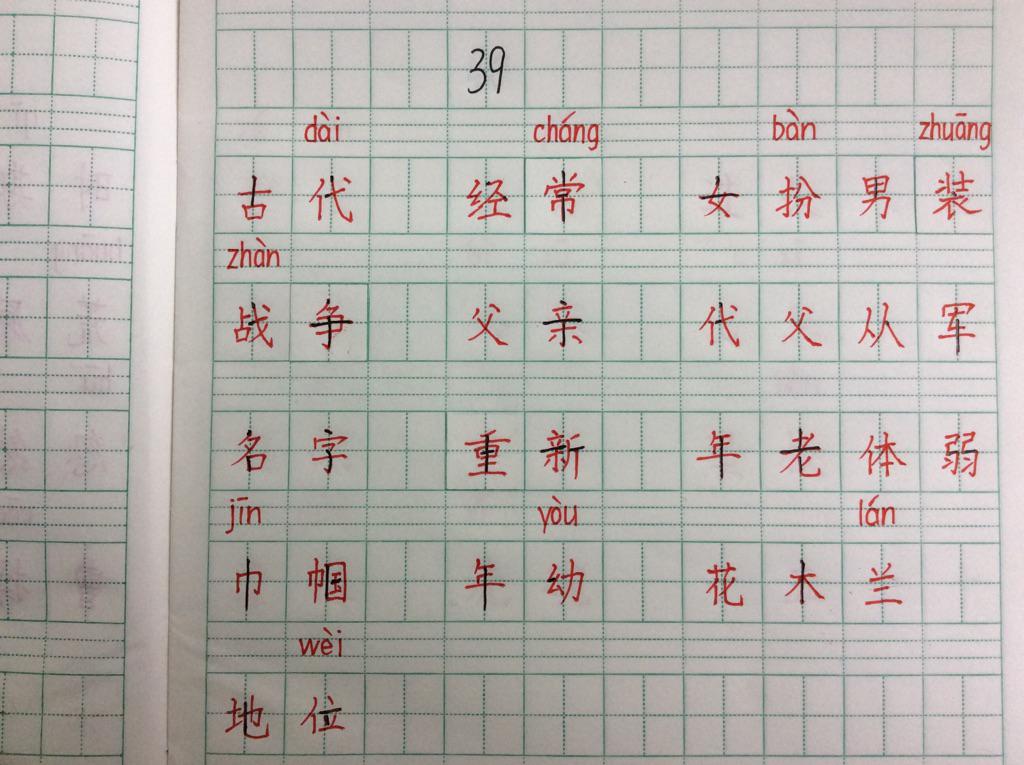 39
dài cháng bàn zhuāng
古代 经常 女扮男装
zhàn
战争 父亲 代父从军
名字 重新 年老体弱
jīn yòu lán
巾帼 年幼 花木兰
wèi
地位